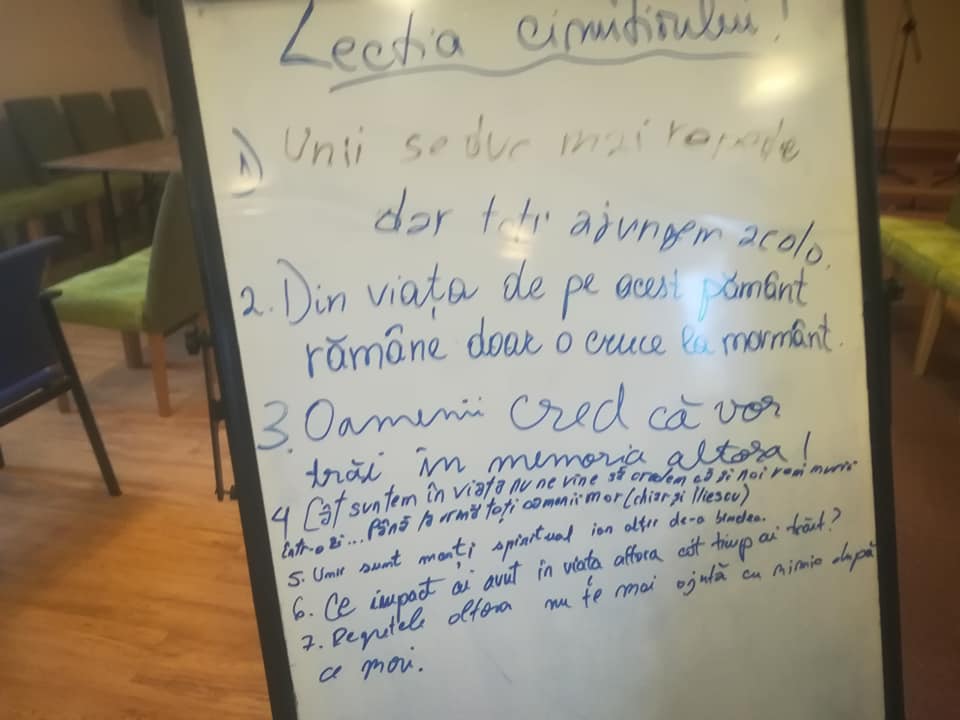 Lectia cimitirului!
1) Unii se duc mai repede
dar toti ajungem acolo.
2. Din viața de pe acest pământ
rămâne doar o cruce la mormânt.
3. Oamenii cred că vor
trăi în memoria altora!
4 Cât suntem în viata nu ne vine să credem că și noi vom murii
într-o zi... Până la urmă toți oamenii mor (chiar și Iliescu)
5. Unii sunt morți spiritual iar alții de-a bindea.
6. Ce impact ai avut în viata altora cât timp ai trăit?
7. Regretele altora nu te mai ajută cu nimic după
ce mori.